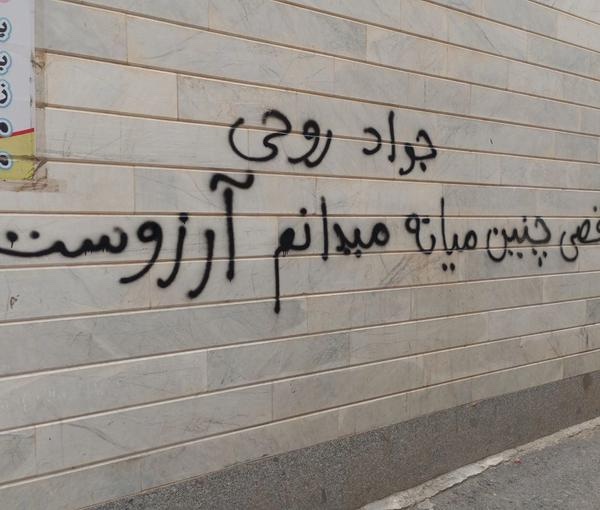 جواد روحی
قصی چنین میانه میدانم آرزوست